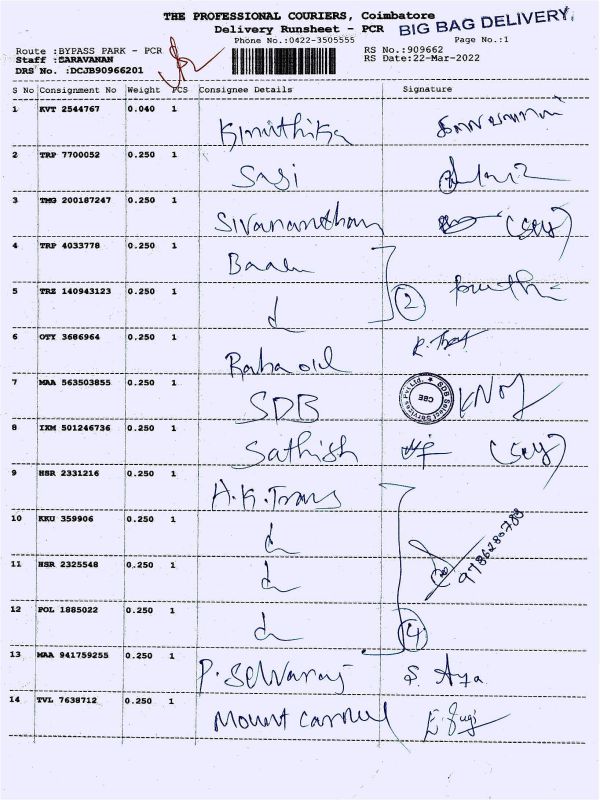 THE PROFESSIONAL COURIERS, Coimbatore
Delivery Runsheet - PCR BIG BAG DELIVERY.
Phone No.:0422-3505555 Page No.:1
Route :BYPASS PARK - PCR RS No.:909662
Staff :SARAVANAN RS Date:22-Mar-2022
DRS No. :DCJB90966201
S No Consignment No Weight PCS Consignee Details Signature
1 KVT 2544767 0.040 1 Kiruthika
2 TRP 7700052 0.250 1 Sagi
3 TMG 200187247 0.250 1 Sivananthan
4 TRP 4033778 0.250 1
5 TRZ 140943123 0.250 1 d 2
6 OTY 3686964 0.250 1 Raha oil
7 MAA 563503855 0.250 1 SDB SDB Select Services Pvt Ltd. CBE
8 IXM 501246736 0.250 1 Sathish
9 HSR 2331216 0.250 1 A.K.Trans
10 KKU 359906 0.250 1 d
11 HSR 2325548 0.250 1 d 9786280788
12 POL 1885022 0.250 1 d 4
13 MAA 941759255 0.250 1 P. Selvaraj
14 TVL 7638712 0.250 1 Mount Carmel